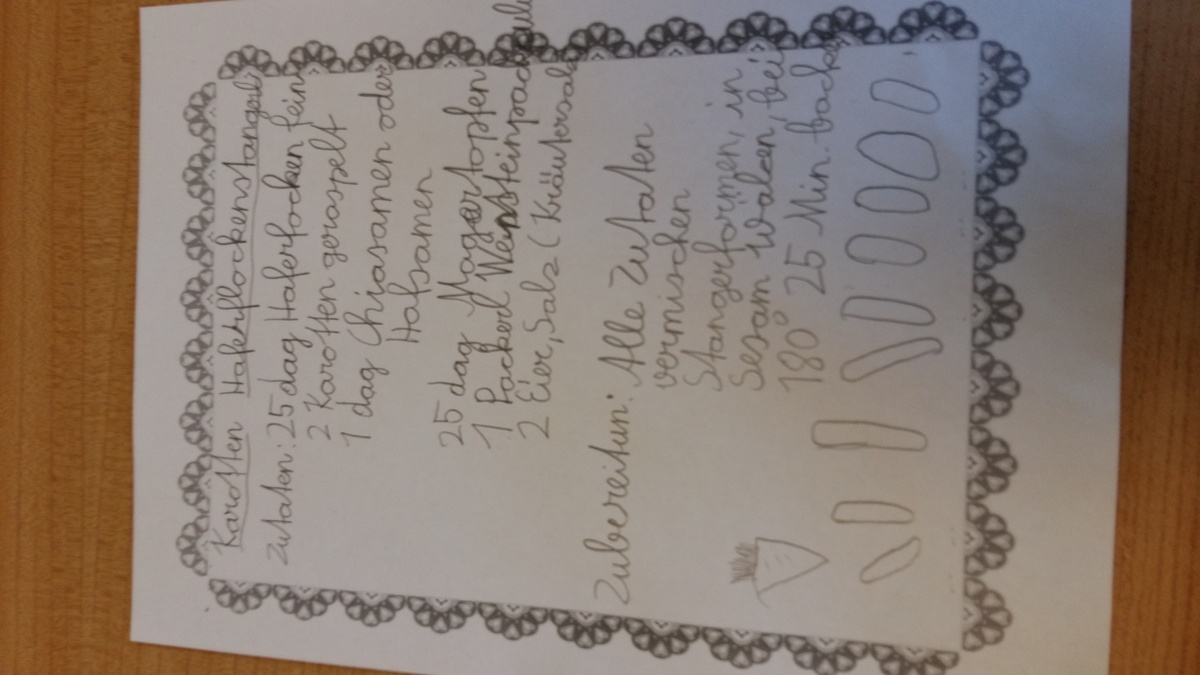 Karotten Haferflockenstangerl
Zutaten: 25 dag Haferfocken fein
2 Karotten geraspelt
1 dag Chiasamen oder
Hafsamen
25 dag Magertopfen
1 Packerl Weinsteinpackpulv
2 Eier, Salz (Kräutersalz
Zubereitun: Alle Zutaten
vermischen
Stangerformen, in
Sesam wälzen, bei
180° 25 Min. backe